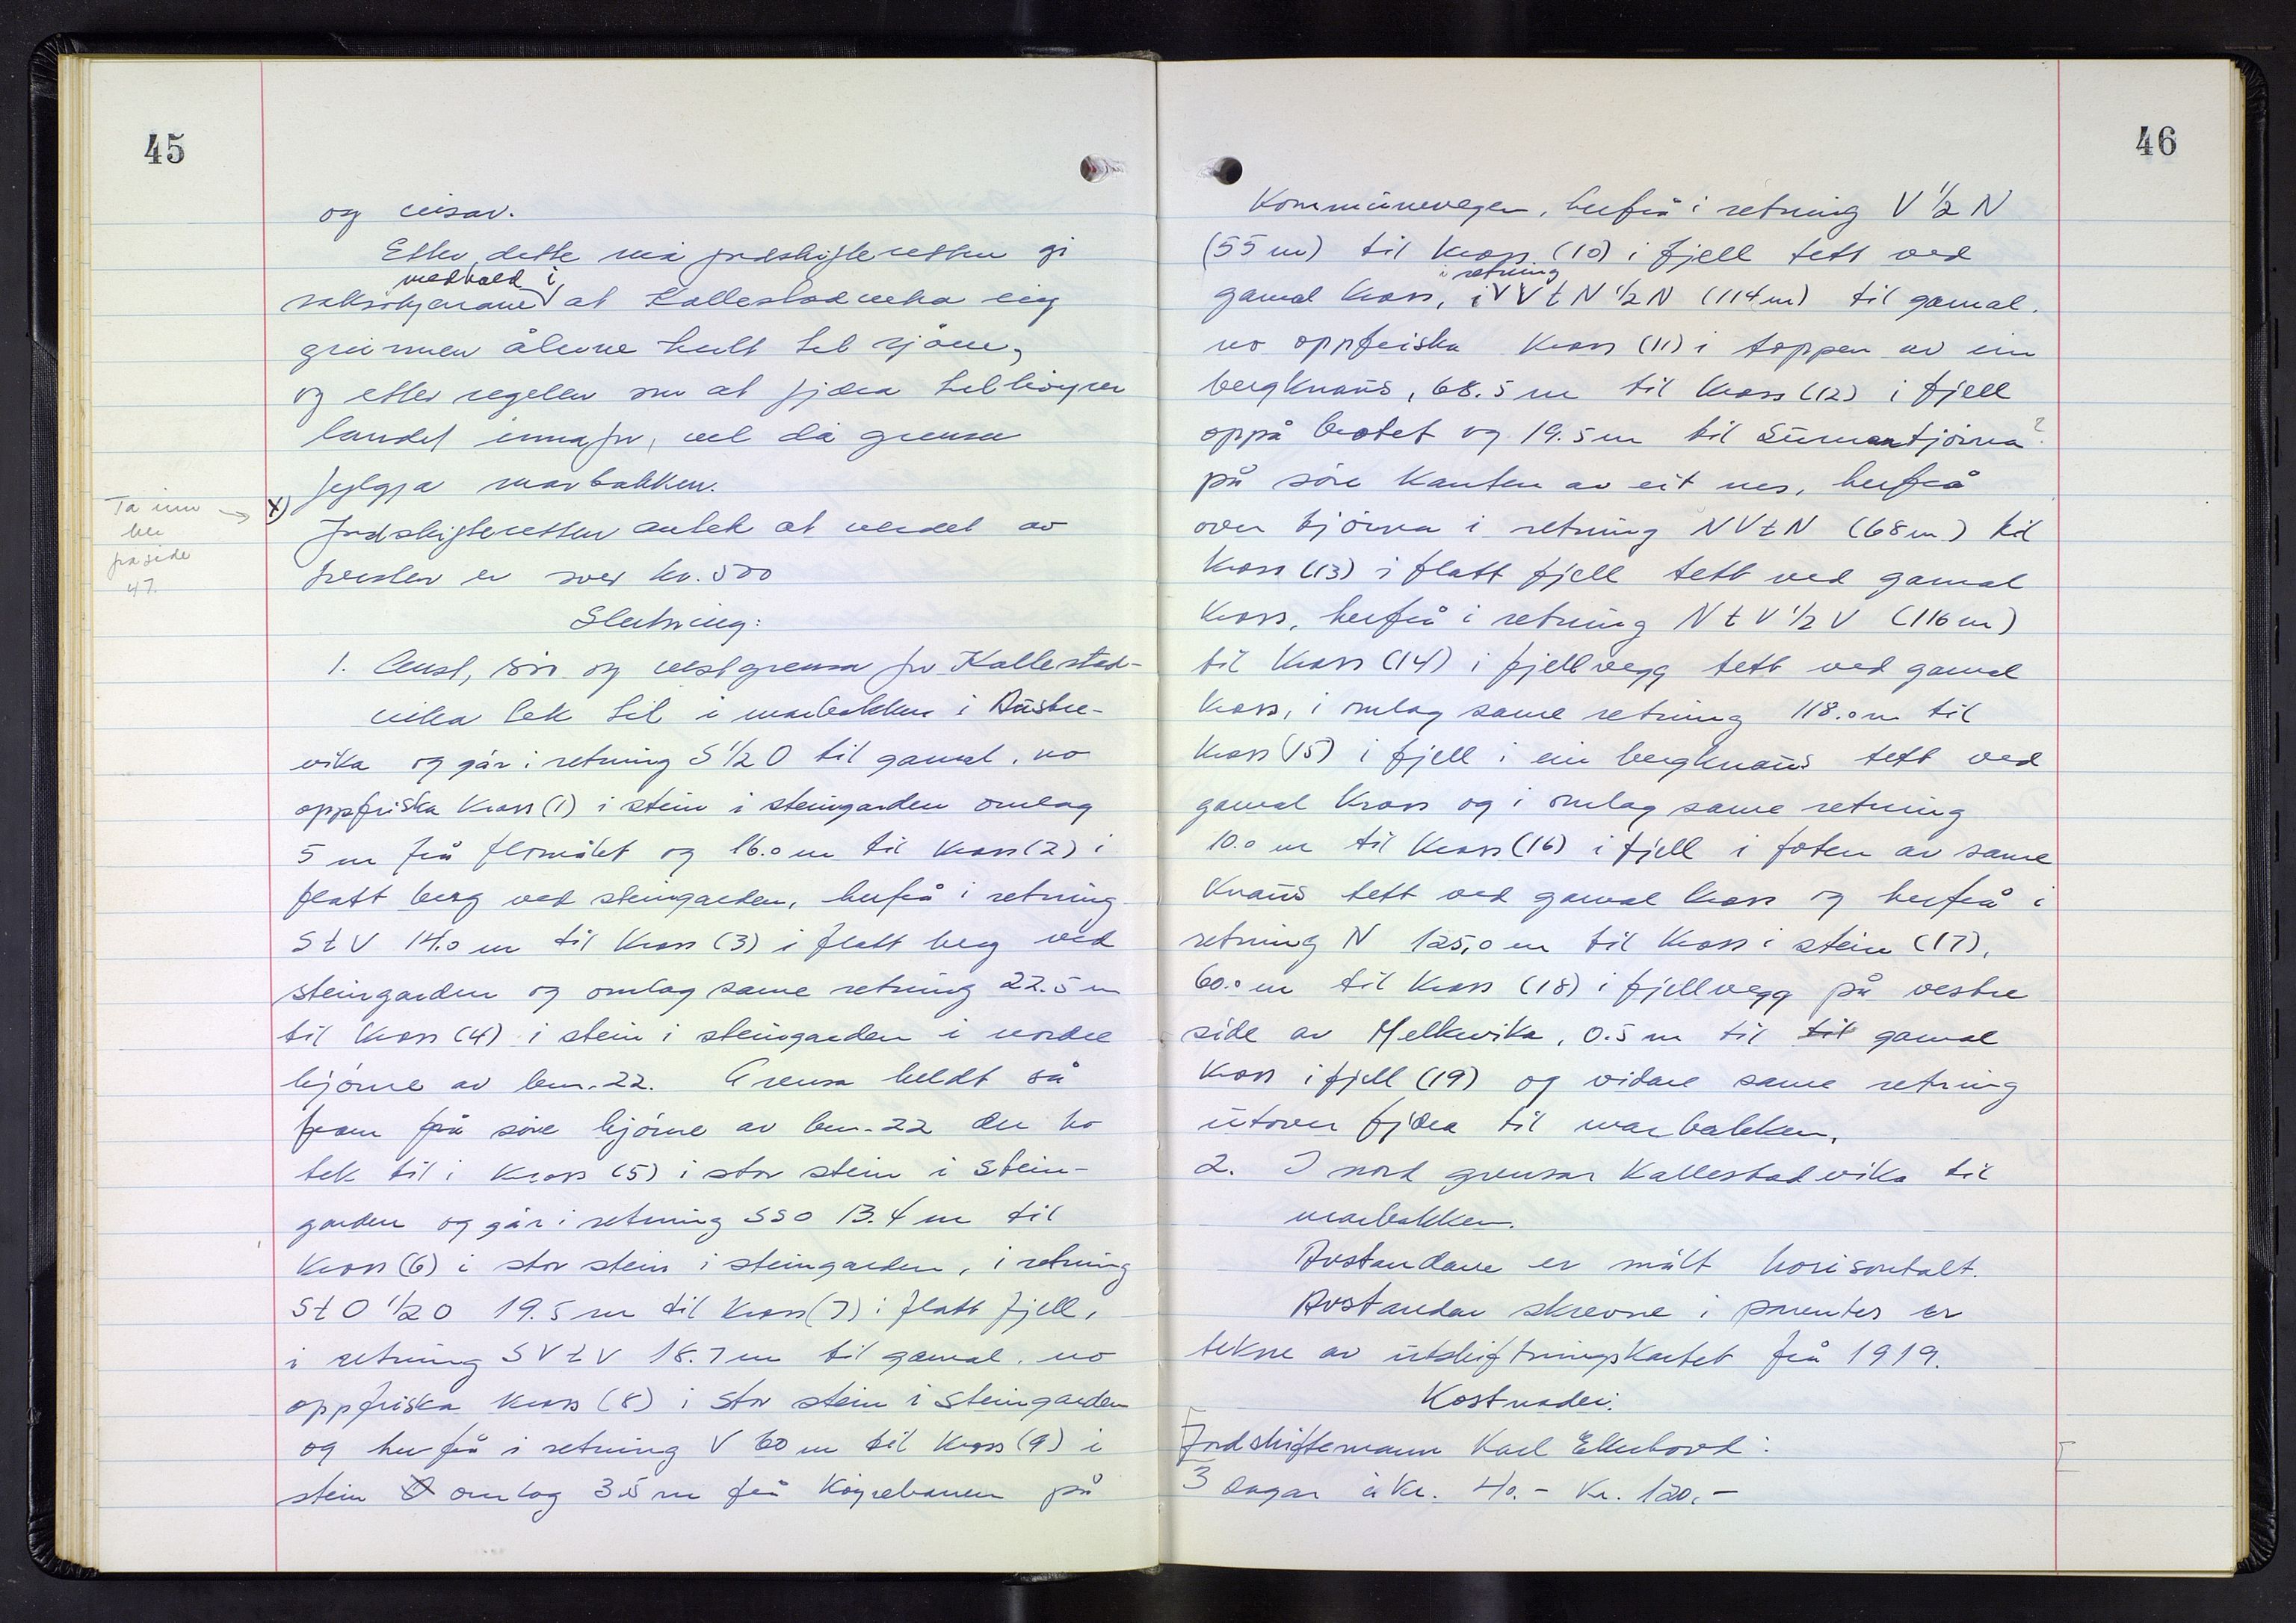 45
og visar.
Etter dette må jordskifteretten gi
medhald i
saksökjarane at Kallestadvika eig
grunnen ålevne heilt til sjöen,
og etter regelen om at fjöra tilhöyrer
landet innafor, vil då grensa
fylgja marbakken.
Ta inn
her
frå side
47.
X)
Jordskifteretten antek at verdet av
tvisten er over kr. 500
Slutning:
1. Aust, sör og vestgrensa for Kallestad-
vika tek til i marbakken i Austre-
vika og går i retning S 1/2 O til gamal, no
oppfriska kross (1) i stein i steingarden omlag
5 m frå flomålet og 16.0 m til kross (2) i
flatt berg ved steingarden, herfrå i retning
S t V 14.0 m til kross (3) i flatt berg ved
steingarden og omlag same retning 22.5 m
til kross (4) i stein i steingarden i nordre
hjörne av bnr. 22. Grensa heldt så
fram frå söre hjörne av bnr. 22 der ho
tek til i kross (5) i stor stein i stein-
garden og går i retning SSO 13.4 m til
kross (6) i stor stein i steingarden, i retning
S t O 1/2 O 19.5 m til kross (7) i flatt fjell,
i retning SV t V 18.7 m til gamal, no
oppfriska kross (8) i stor stein i steingarden
og herfrå i retning V 60 m til kross (9) i
stein omlag 3.5 m frå Köyrebanen på
46
Kommunevegen, herfrå i retning V 1/2 N
(55 m) til kross (10) i fjell tett ved
i retning
gamal kross, i V t N 1/2 N (114 m) til gamal,
no oppfriska kross (11) i toppen av ein
bergknaus, 68.5 m til kross (12) i fjell
oppå brotet og 19.5 m til Sumantjörna ?
på söre kanten av eit nes, herfrå
over tjörna i retning NV t N (68 m) til
kross (13) i flatt fjell tett ved gamal
kross, herfrå i retning N t V 1/2 V (116 m)
til kross (14) i fjellvegg tett ved gamal
kross, i omlag same retning 118.0 m til
kross (15) i fjell i ein bergknaus tett ved
gamal kross og i omlag same retning
10.0 m til kross (16) i fjell i foten av same
knaus tett ved gamal kross og herfrå i
retning N 125,0 m til kross i stein (17),
60.0 m til kross (18) i fjellvegg på vestre
side av Melkevika, 0.5 m til til gamal
kross i fjell (19) og vidare same retning
utover fjöra til marbakken.
2. I nord grensar Kallestadvika til
marbakken.
Avstandane er målt horisontalt.
Avstandar skrevne i parentes er
tekne av utskiftningskartet frå 1919.
Kostnader:
Jordskiftemann Karl Ellerhovd:
3 dagar à kr. 40.- Kr. 120.-